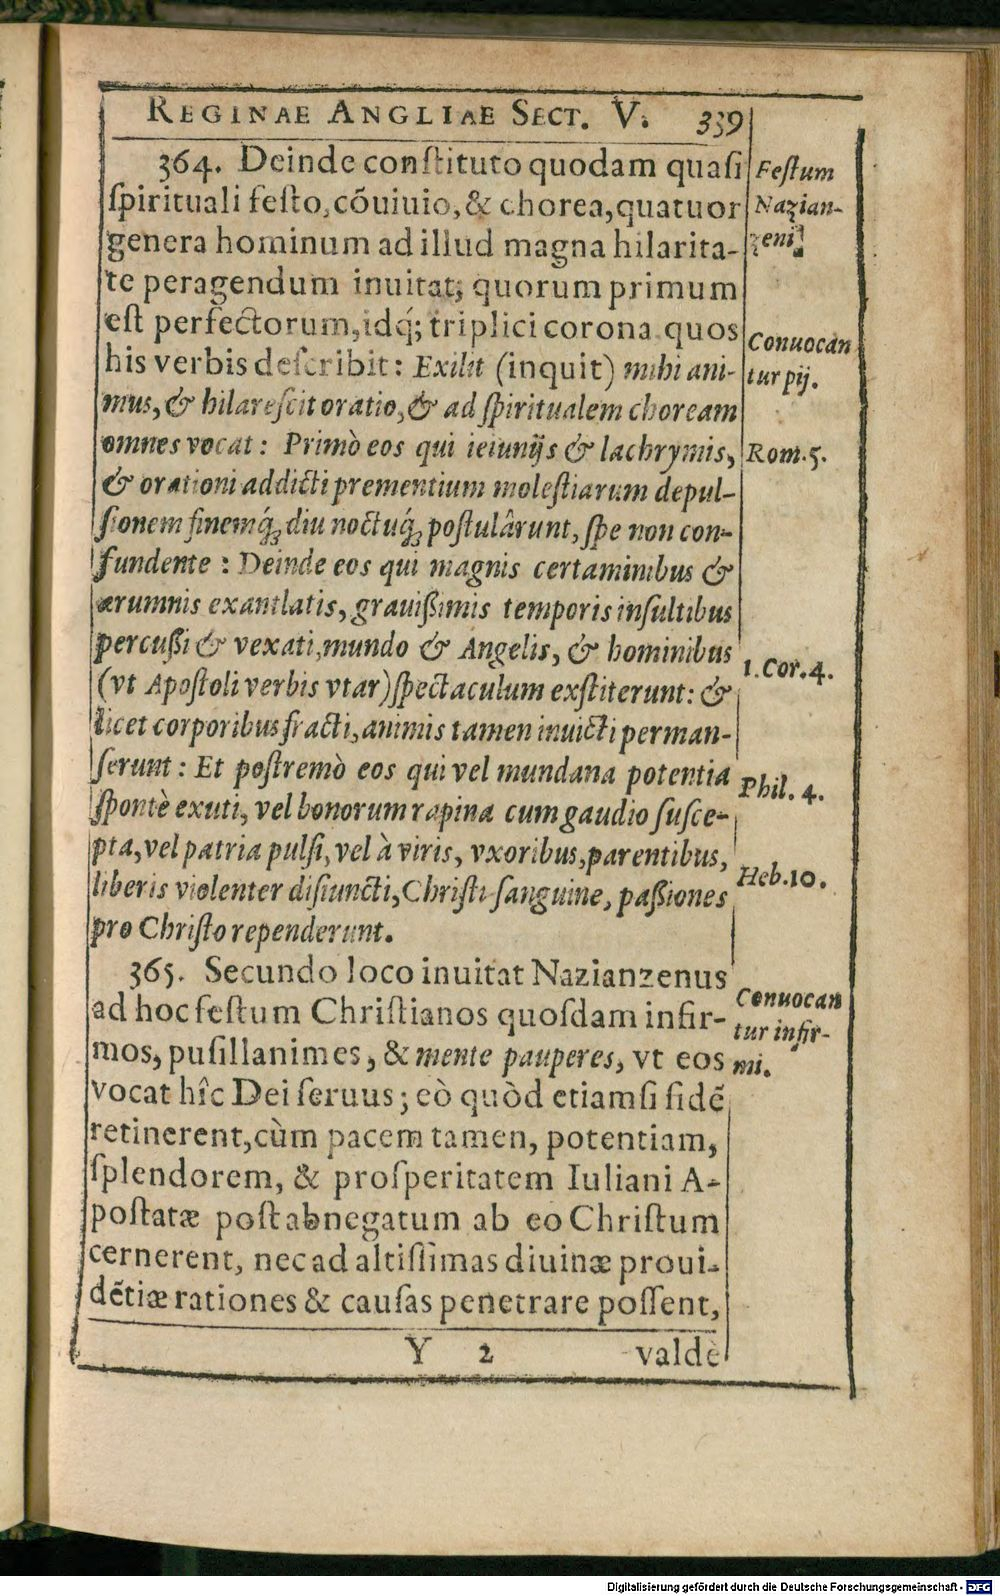 REGINAE ANGLIAE SECT. V. 339
364. Deinde conſtituto quodam quaſi
ſpirituali feſto, cõuiuio, & chorea, quatuor
genera hominum ad illud magna hilarita-
te peragendum inuitat; quorum primum
eſt perfectorum, idq́; triplici corona quos
his verbis deſcribit: Exilit (inquit) mihi ani-
mus, & hilareſcit oratio, & ad ſpiritualem choream
omnes vocat: Primò eos qui ieiunijs & lachrymis,
& orationi addicti prementium moleſtiarum depul-
ſionem finemq́ꝫ diu noctuq́ꝫ poſtulârunt, ſpe non con-
fundente: Deinde eos qui magnis certaminibus &
ærumnis exantlatis, grauißimis temporis inſultibus
percußi & vexati, mundo & Angelis, & hominibus
(vt Apoſtoli verbis vtar) ſpectaculum exſtiterunt: &
licet corporibus fracti, animis tamen inuicti perman-
ſerunt: Et poſtremò eos qui vel mundana potentia
ſpontè exuti, vel bonorum rapina cum gaudio ſuſce-
pta, vel patria pulſi, vel à viris, vxoribus, parentibus,
liberis violenter diſiuncti, Chriſti ſanguine, paßiones
pro Chriſto rependerunt.
365. Secundo loco inuitat Nazianzenus
ad hoc feſtum Chriſtianos quoſdam infir-
mos, puſillanimes, & mente pauperes, vt eos
vocat hîc Dei ſeruus; eò quòd etiamſi fidẽ
retinerent, cùm pacem tamen, potentiam,
ſplendorem, & proſperitatem Iuliani A-
poſtatæ poſt abnegatum ab eo Chriſtum
cernerent, nec ad altiſſimas diuinæ proui-
dẽtiæ rationes & cauſas penetrare poſſent,
Y 2 valdè
Feſtum
Nazian-
zeni.
Conuocan
tur pij.
Rom. 5.
1. Cor. 4.
Phil. 4.
Heb. 10.
Conuocan
tur infir-
mi.
Digitalisierung gefördert durch die Deutsche Forschungsgemeinschaft - DFG